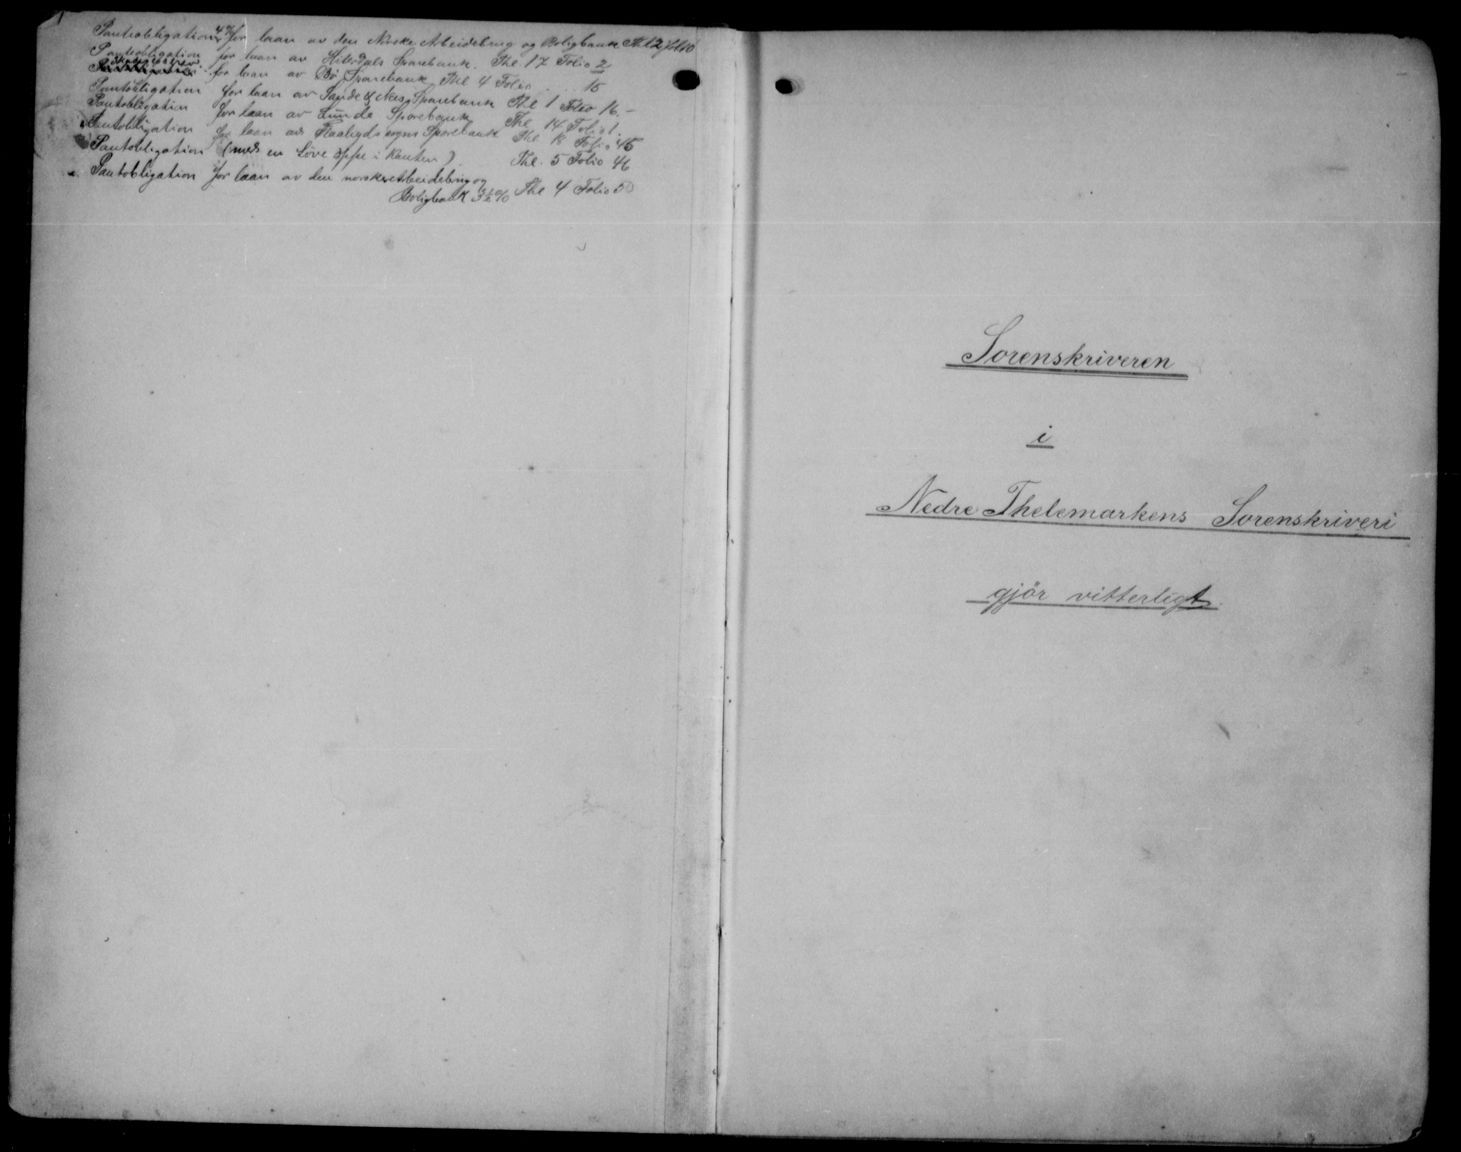 Pantobligation 4% for laan av den Norske Arbeiderbrug og Boligbank Thl 2 folio
Pantobligation for laan av Hiterdals Sparebank. Thl 17 Folio 2
for laan av Bö Sparebank Thl 4 Folio . . . 15
Pantobligation for laan av Sande & Næs Sparebank Thl 1 Folio 16.-
Pantobligation for laan av Lunde Sparebank Thl 14 Folio 1.
Pantobligation for laan av Flaabygds sogns Sparebank Thl 18 Folio 45
Pantobligation (med en Löve öppe i Kanten) Thl. 5 Folio 46
Pantobligation for laan av den norske Arbeiderbrug og
Boligbank 3½% Thl 4 Folio 50
Sorenskriveren
i
Nedre Thelemarkens Sorenskriveri
gjör vitterligt